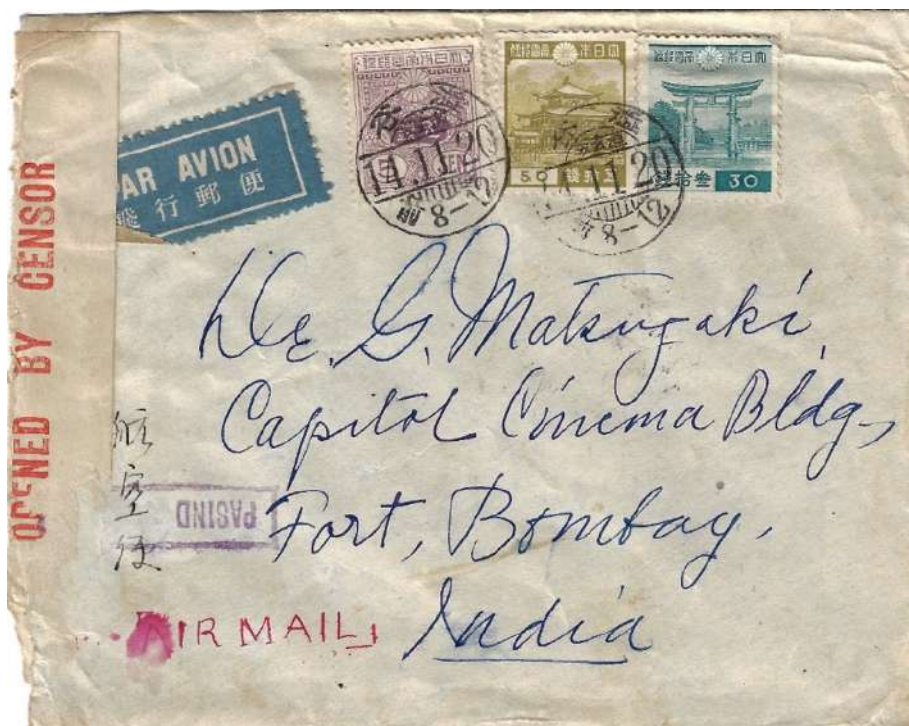 OPENED BY CENSOR
PAR AVION
飛行郵便
大日本帝國郵便
50
大日本帝國郵便
30
參拾錢
14.11.20
前8-12
14.11.20
前8-12
Dr. G. Matsugaki,
Capitol Cinema Bldg,
Fort, Bombay,
India
航空便
PASIND
AIR MAIL